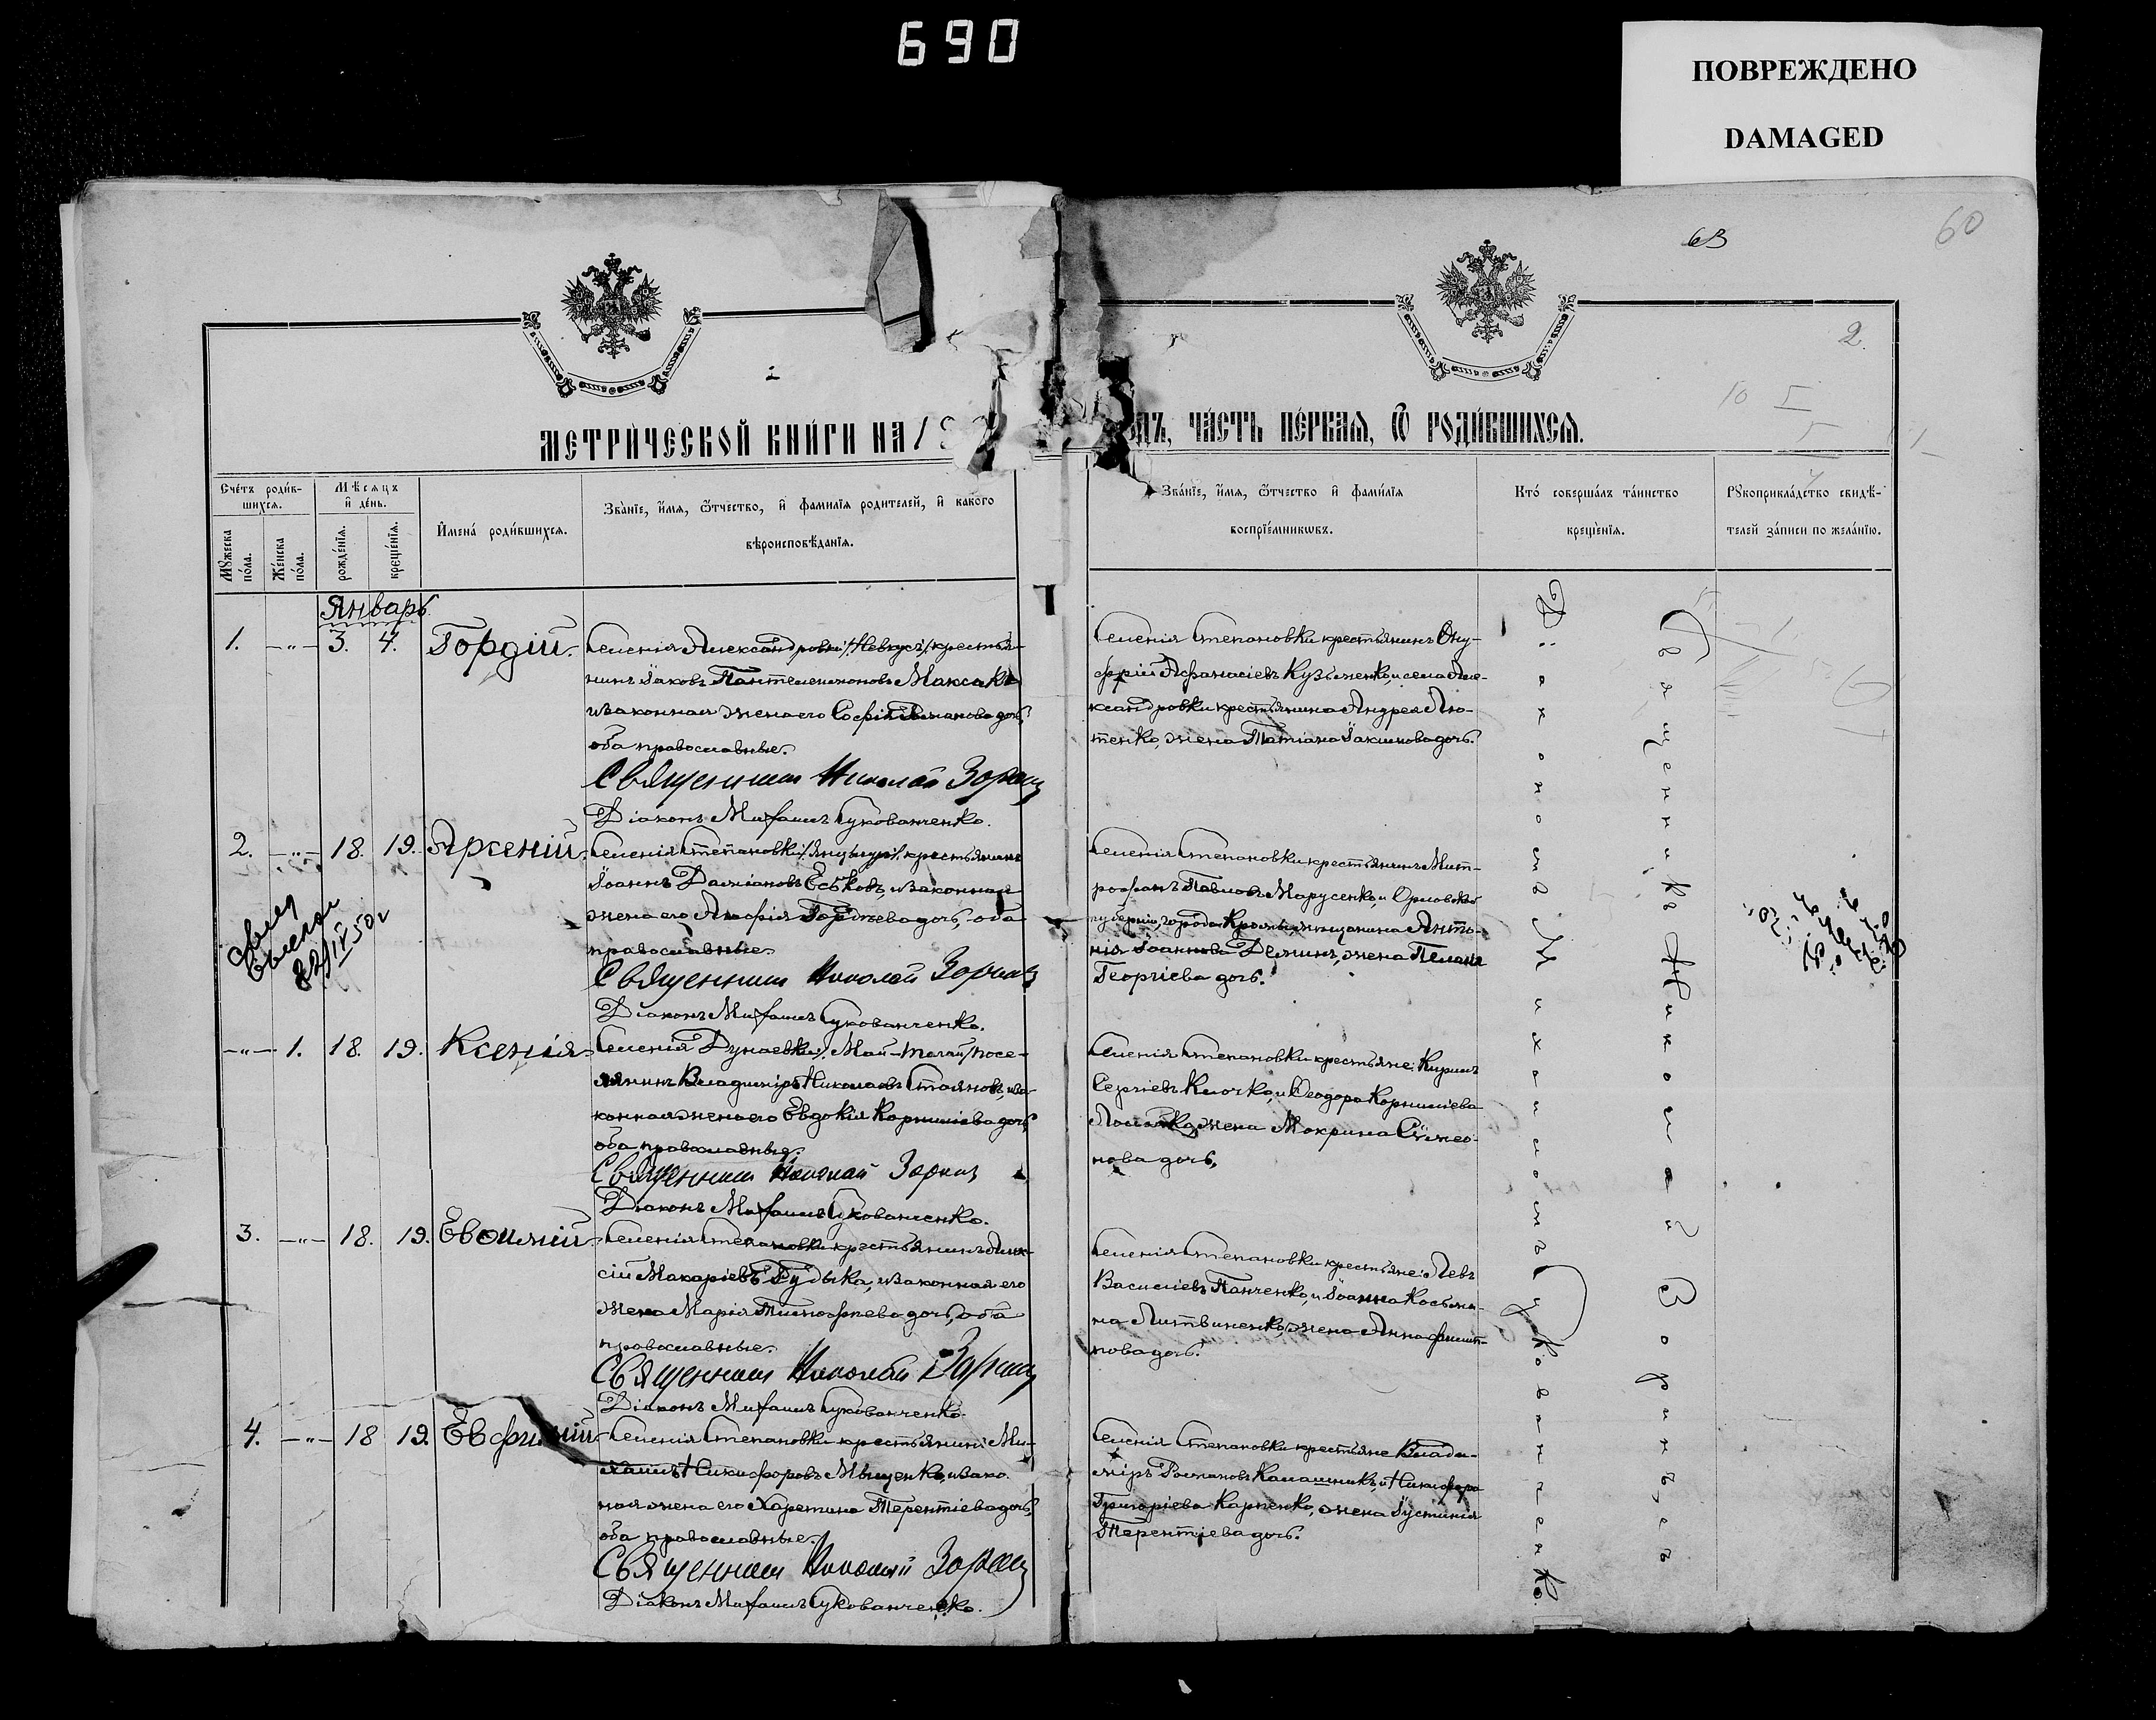 690
ПОВРЕЖДЕНО
DAMAGED
63
60
2.
МЕТРИ́ЧЕСКОЙ КНИ́ГИ НА 19
ДЪ, ЧА́СТЬ ПЕ́РВАЯ, Ѿ РОДИ́ВШИХСЯ.
Сче́тъ роди́в-
шихся.
Мꙋ́жеска по́ла.
Же́нска по́ла.
Мѣ́сяцъ
и҆ де́нь.
рожде́нїя.
креще́нїя.
И҆мена̀ роди́вшихся.
Зва́нїе, и҆́мя, ѻ҆́тчество, и҆ фами́лїя роди́телей, и҆ како́го
вѣроисповѣ́данїя.
Зва́нїе, и҆́мя, ѻ҆́тчество и҆ фами́лїя
воспрїе́мникѡвъ.
Кто̀ соверша́лъ та́инство
креще́нїя.
Рꙋкоприкла́дство свидѣ́-
телей за́писи по жела́нїю.
Январь.
1. —"— 3. 4. Гордій.
Селенія Александровки /:Невкусъ:/ крестья-
нинъ Іаковъ Пантелеимоновъ Максакъ
и законная жена его Софія Романова дочь,
оба православные.
Священникъ Николай Зоринъ
Діаконъ Михаилъ Сукованченко.
Селенія Степановки крестьянинъ Ону-
фрій Афанасіевъ Кузьменко, и села Але-
ксандровки крестьянина Андрея Лю-
тенко, жена Татіана Іакимова дочь.
2. —"— 18. 19. Арсеній.
Селенія Степановки крестьянинъ
Іоаннъ Даміановъ Еськовъ, и законная
жена его Агафія Гордіева дочь, оба
православные.
Священникъ Николай Зоринъ
Діаконъ Михаилъ Сукованченко.
Селенія Степановки крестьянинъ Мит-
рофанъ Павловъ Марусенко, и Орловской
губерніи, города Кромы, мещанина Анто-
нія Іоаннова Демина, жена Пелагія
Георгіева дочь.
—"— 1. 18. 19. Ксенія.
Селенія Дунаевки посе-
лянинъ Владиміръ Николаевъ Стояновъ, и за-
конная жена его Евдокія Корнилиева дочь,
оба православные.
Священникъ Николай Зоринъ
Діаконъ Михаилъ Сукованченко.
Селенія Степановки крестьяне: Кириллъ
Сергіевъ Клочко, и Ѳеодора Корнилиева
жена Макрина Сѵмео-
нова дочь.
3. —"— 18. 19. Евѳимій.
Селенія Степановки крестьянинъ Алек-
сій Макаріевъ Гудыка, и законная его
жена Марія Тимофеева дочь, оба
православные.
Священникъ Николай Зоринъ
Діаконъ Михаилъ Сукованченко.
Селенія Степановки крестьяне: Левъ
Василіевъ Панченко, и Іоанна Косьми-
на Литвиненко, жена Анна Филип-
пова дочь.
4. —"— 18 19. Евфимій
Селенія Степановки крестьянинъ Ми-
хаилъ Никифоровъ Мыценко, и зако-
ная жена его Харитина Терентіева дочь,
оба православные.
Священникъ Николай Зоринъ
Діаконъ Михаилъ Сукованченко.
Селенія Степановки крестьяне Влади-
міръ Романовъ Калашникъ, и Никифора
Григоріева Карпенко, жена Іустинія
Терентіева дочь.
Священникъ Николай Зоринъ съ
Діакономъ Михаиломъ Сукованченко.